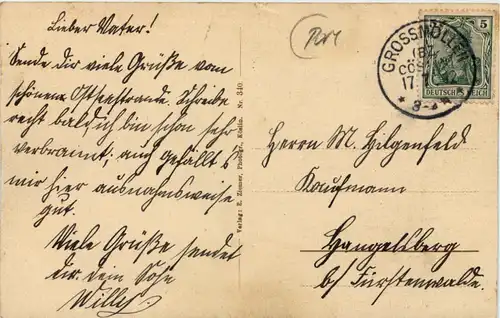 Lieber Vater!
Sende dir viele Grüße vom
schönen Ostseestrande. Schreibe
recht bald, ich bin schon sehr
verbrannt; auch gefällt's
mir hier ausnahmsweise
gut.
Viele Grüße sendet
dir dein Sohn
Willy.
Verlag: E. Zimmer, Photogr., Köslin. Nr. 340
GROSSMÖLLEN
(BZ.
CÖSLIN)
17.
5
DEUTSCHES REICH
Herrn M. Hilgenfeld
Kaufmann
Hangelsberg
b/ Fürstenwalde.